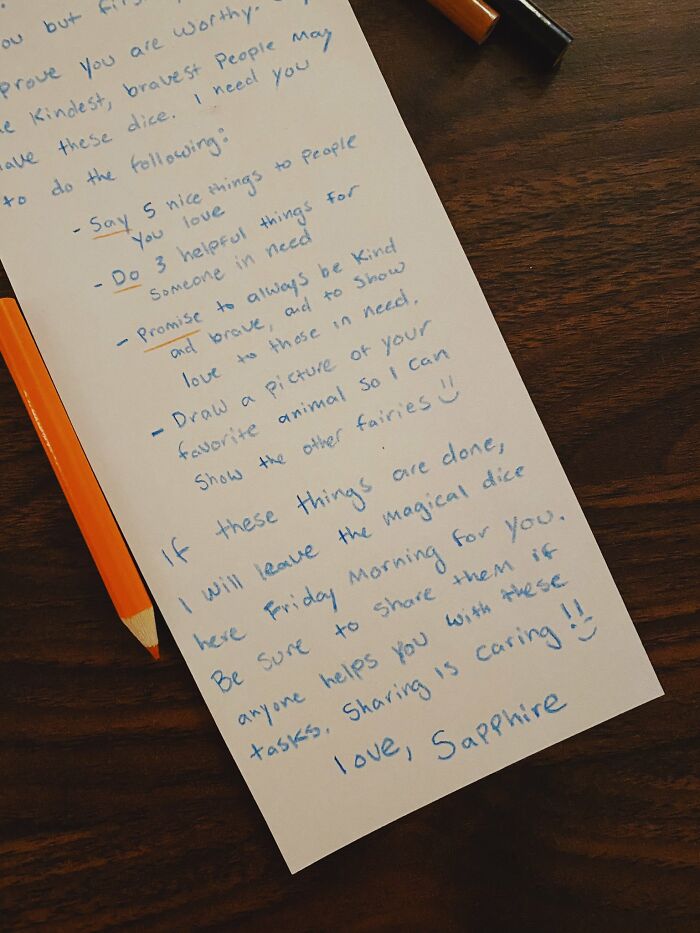 but first
prove you are worthy.
kindest, bravest People May
these dice. I need you
to do the following:
- Say 5 nice things to People
you love
- Do 3 helpful things for
Someone in need
- Promise to always be Kind
and brave, and to show
love to those in need.
- Draw a picture of your
favorite animal so I can
Show the other fairies
If these things are done,
I will leave the magical dice
here Friday Morning for you.
Be sure to share them if
anyone helps you with these
tasks. Sharing is caring!!
love, Sapphire